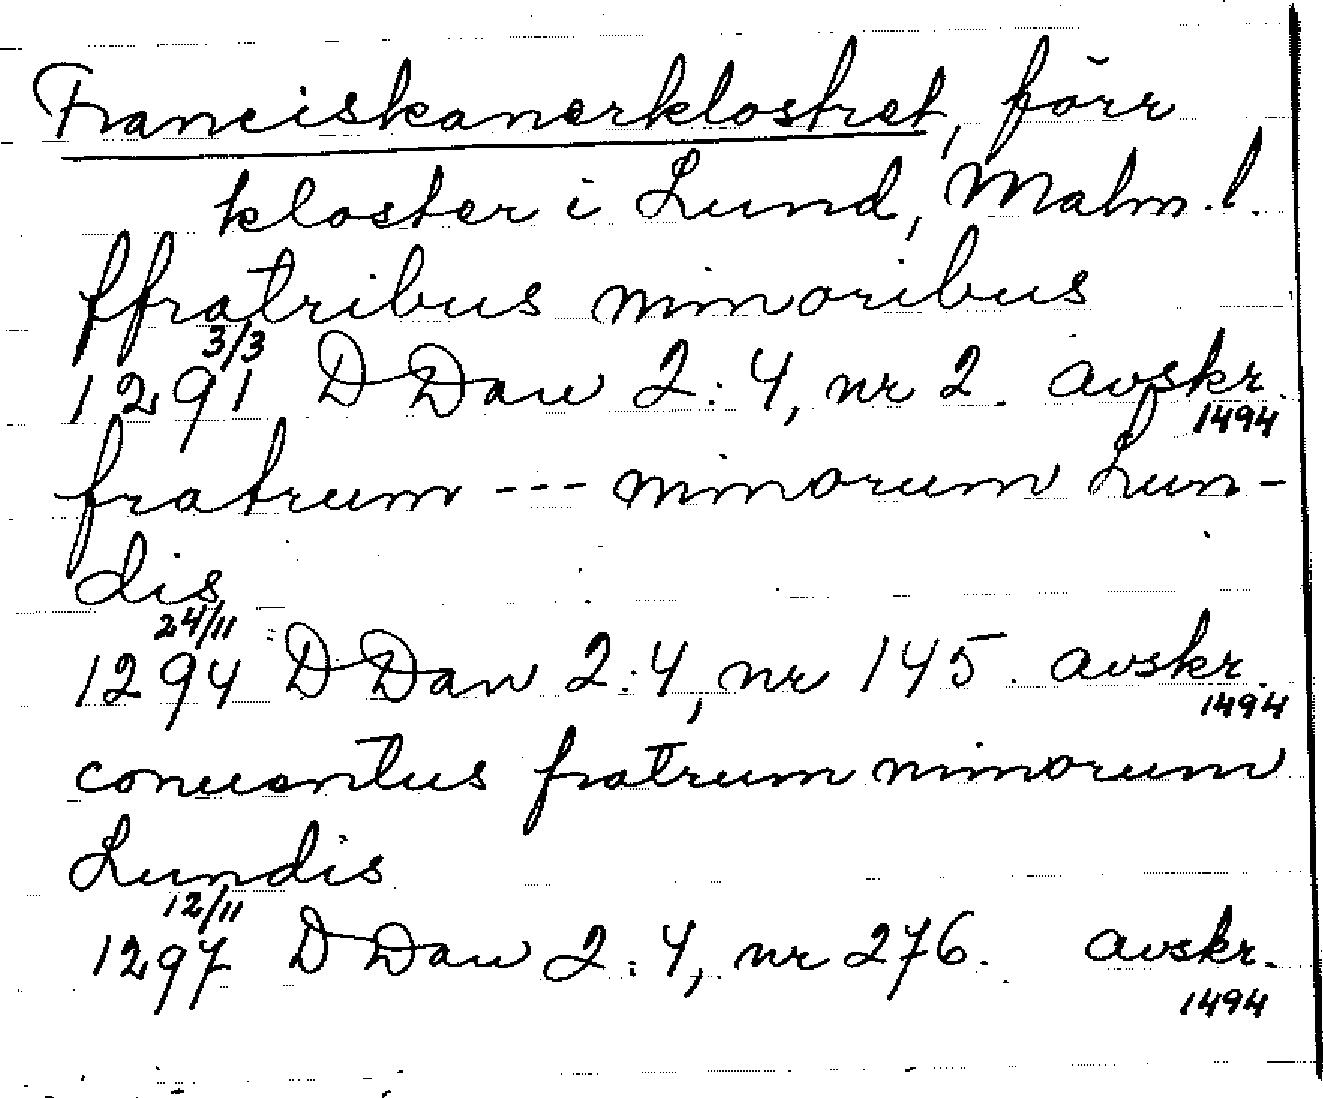 Franciskanerklostret, förr
kloster i Lund, Malm. l.
ffratribus minoribus
3/3
1291 D Dan 2:4, nr 2. avskr.
1494
fratrum --- minorum Lun-
dis
24/11
1294 D Dan 2:4, nr 145. avskr.
1494
conuentus fratrum minorum
Lundis
12/11
1297 D Dan 2:4, nr 276. avskr.
1494